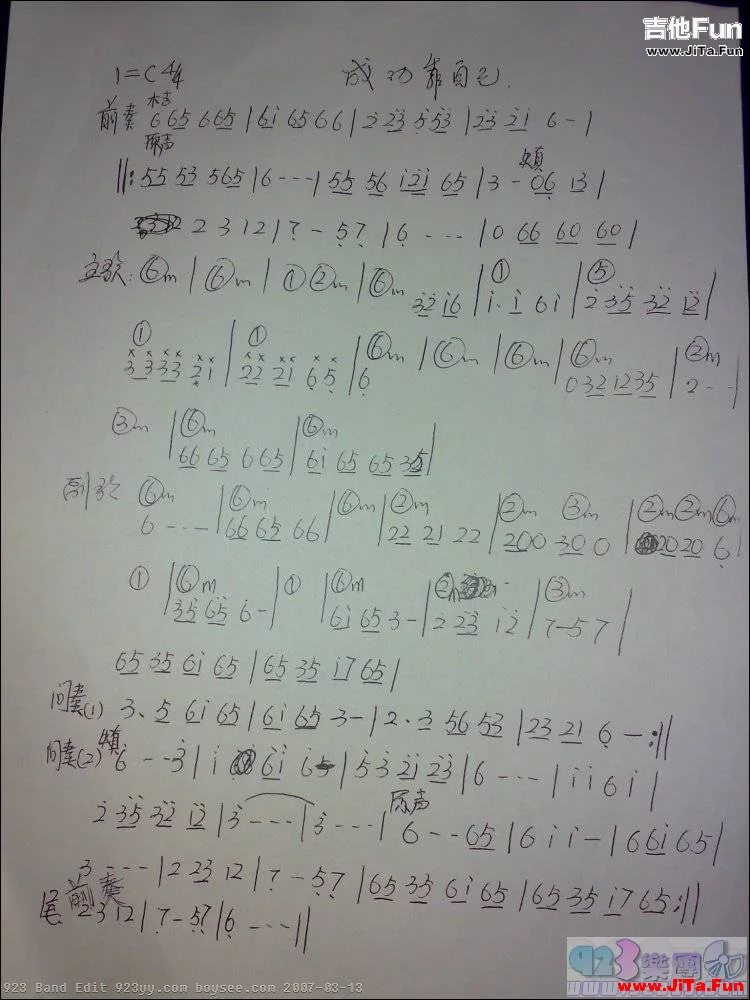 吉他Fun
www.JiTa.Fun
1=C 4/4 成功靠自己
前奏 6 65 6 65 | 6i 65 6 6 | 2 23 5 53 | 23 21 6 - |
原声
||: 55 53 5 65 | 6 - - - | 55 56 i2i 65 | 3 - 06 13 |
2 3 12 | 7 - 57 | 6 - - - | 0 66 60 60 |
主歌: ⑥m | ⑥m | ① ②m | ⑥m 32 16 | ① i. i 6 i | ⑤ 2 35 32 12 |
① 33 33 21 | ① 22 21 6 5 | ⑥m 6 | ⑥m | ⑥m | ⑥m 0 32 12 35 | ②m 2 - - |
③m | ⑥m 66 65 6 65 | ⑥m 6i 65 65 35 |
副歌 ⑥m 6 - - - | ⑥m 66 65 66 | ⑥m | ②m 22 21 22 | ②m 200 ③m 300 | ②m ②m ⑥m 20 20 6 |
① | ⑥m 35 65 6 - | ① | ⑥m 6i 65 3 - | ② 2 23 12 | ③m 7 - 5 7 |
65 35 6i 65 | 65 35 i7 65 |
间奏(1) 3. 5 6i 65 | 6i 65 3 - | 2. 3 56 53 | 23 21 6 - :||
间奏(2) 6 - - 3 | i 6i 6 | 53 21 23 | 6 - - - | i i 6 i |
2 35 32 12 | 3 - - - | 3 - - - | 原声 6 - - 65 | 6 i i - | 6 6i 6 5 |
3 - - - | 2 23 12 | 7 - 57 | 65 35 6i 65 | 65 35 i7 65 :||
尾 前奏 2 3 12 | 7 - 57 | 6 - - - ||
923樂團
923 Band Edit 923yy.com boysee.com 2007-03-13
www.JiTa.Fun